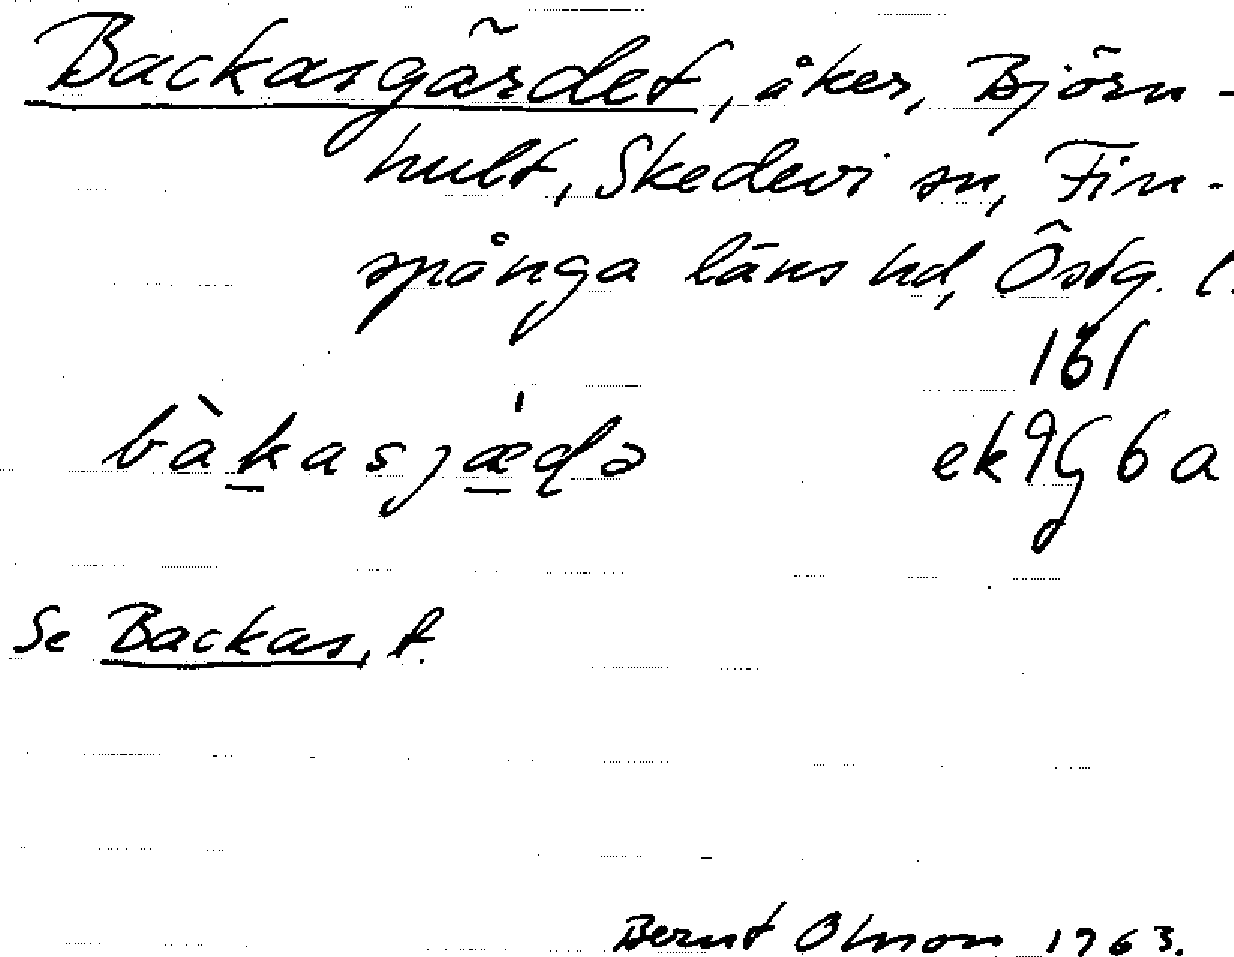 Backasgärdet, åker, Björn-
hult, Skedevi sn, Fin-
spånga läns hd, Östg. l.
161
bàkasjæ̀də ek 9G 6 a
Se Backas, t.
Bernt Olsson 1963.